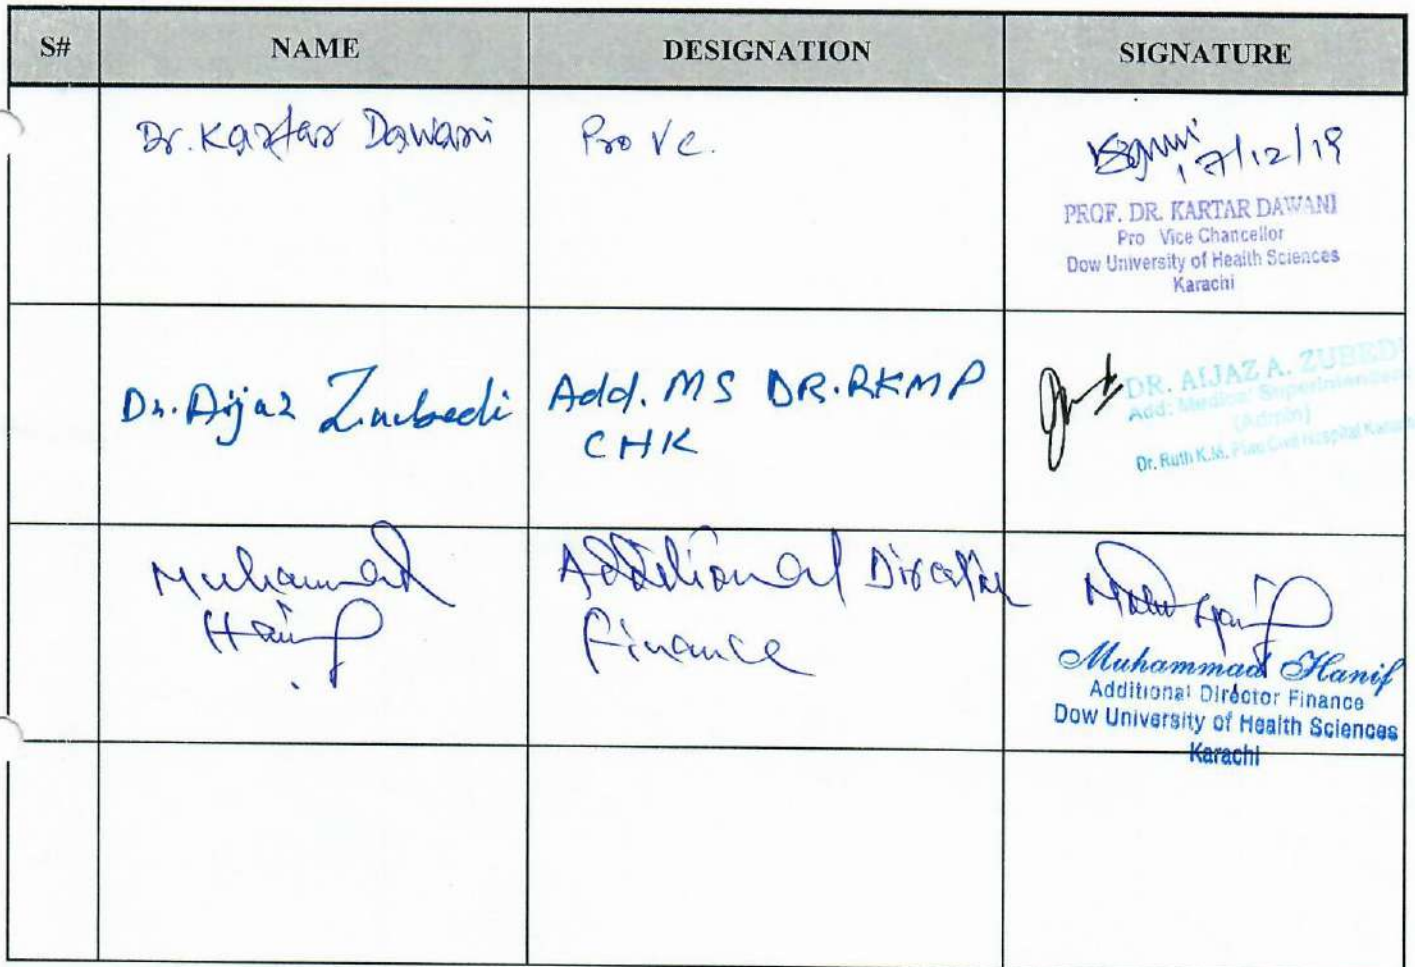 S# NAME DESIGNATION SIGNATURE
Dr. Kartar Dawani Pro VC.
17/12/19
PROF. DR. KARTAR DAWANI
Pro Vice Chancellor
Dow University of Health Sciences
Karachi
Dr. Aijaz Zuubedi Add. MS DR.RKMP
CHK
DR. AIJAZ A. ZUBEDI
Add: Medical Superintendent
(Admin)
Dr. Ruth K.M. Pfau Civil Hospital Karachi
Muhammad Additional Director
Hanif Finance
Muhammad Hanif
Additional Director Finance
Dow University of Health Sciences
Karachi